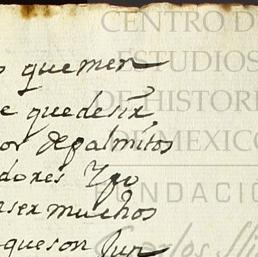 CENTRO D
ESTUDIOS
DE HISTOR
DE MEXICO
FUNDACIÓ
Carlos Sli
o quemen
e quedesir
or depalmitos
dores Ypo
nser muchos
queson Jun